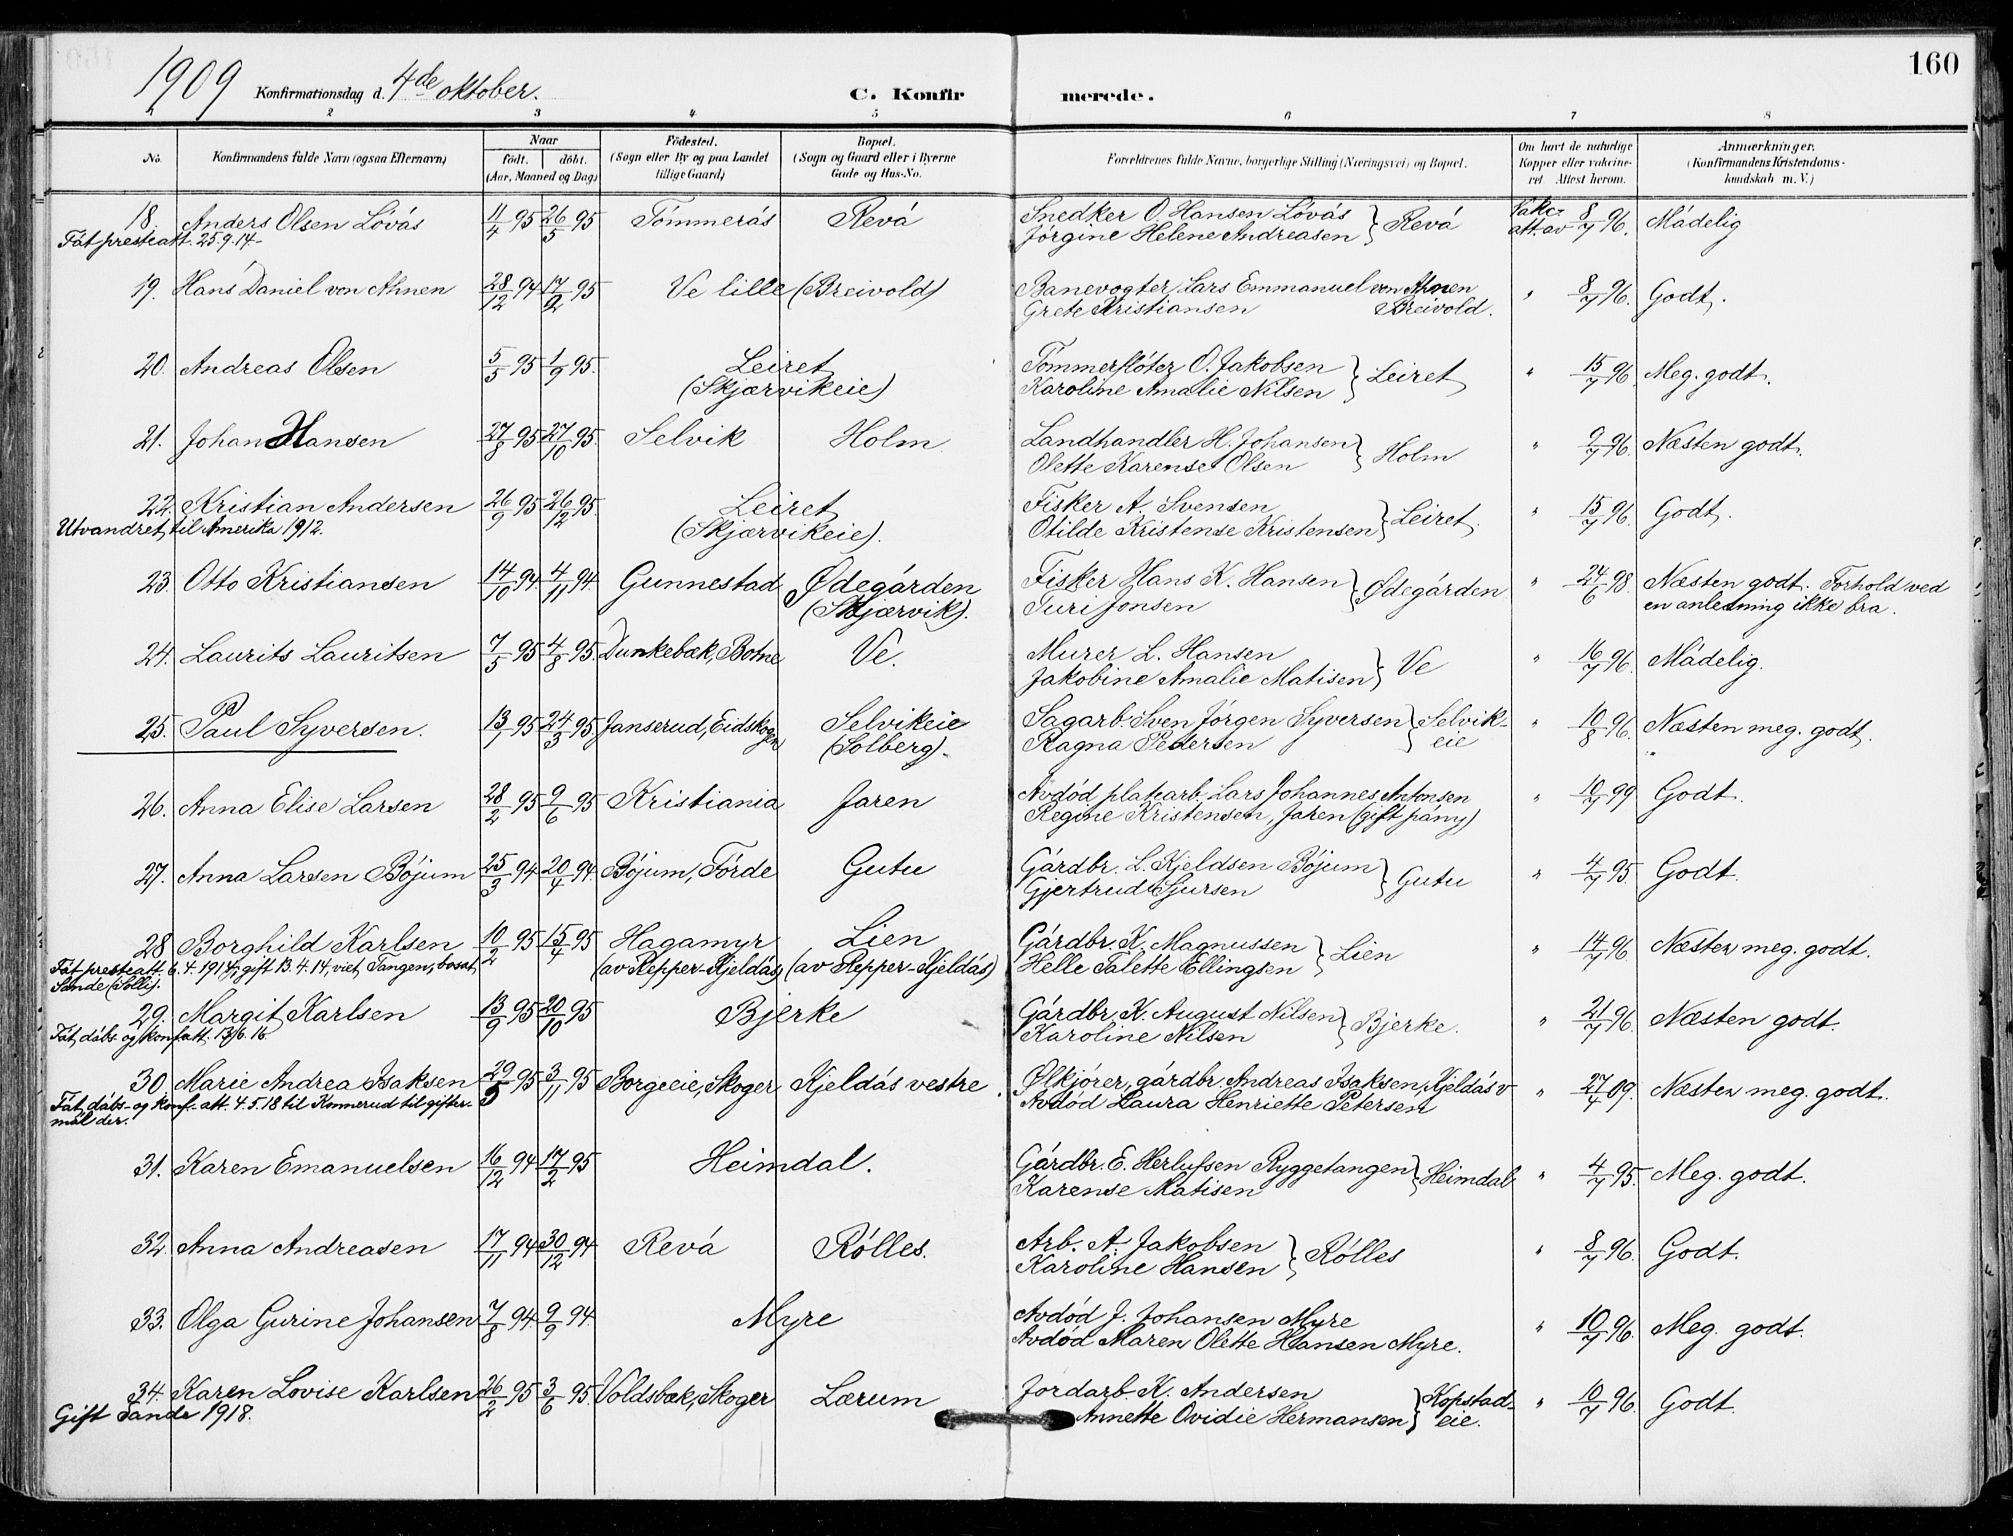 160
1909 Konfirmationsdag d. 4de oktober. C. Konfirmerede.
1 2 3 4 5 6 7 8
No. Konfirmandens fulde Navn (ogsaa Efternavn) Naar født. døbt. (Aar, Maaned og Dag) Fødested. (Sogn eller By og paa Landet tillige Gaard) Bopæl. (Sogn og Gaard eller i Byerne Gade og Hus-No. Forældrenes fulde Navne, borgerlige Stilling (Næringsvei) og Bopæl. Om havt de naturlige Kopper eller vaccineret Attest herom. Anmærkninger. (Konfirmandens Kristendomskundskab m. V.)
18. Anders Olsen Lövås 11/4 95 26/5 95 Tömmerås Revå Snedker O. Hansen Lövås } Revå Vakc. att. av 8/7 96. Mådelig
Fåt presteatt. 25.9.14. Jörgine Helene Andreasen
19. Hans Daniel von Ahnen 28/12 94 17/2 95 Ve lille (Breivold) Banevogter Lars Emmanuel von Ahnen " 8/7 96. Godt.
Grete Kristiansen Breivold.
20. Andreas Olsen 5/5 95 1/9 95. Leiret Tömmerflöter O. Jakobsen } Leiret " 15/7 96. Meg. godt.
(Skjærvikeie) Karoline Amalie Nilsen
21. Johan Hansen 27/8 95 27/10 95. Selvik Holm Landhandler H. Johansen } Holm " 9/7 96. Næsten godt.
Olette Karense Olsen
22. Kristian Andersen 26/9 95 26/12 95. Leiret Fisker A. Svensen } Leiret. " 15/7 96. Godt.
Utvandret til Amerika 1912. (Skjærvikeie). Otilde Kristense Kristensen
23. Otto Kristiansen 14/10 94. 4/11 94. Gunnestad Ødegården Fisker Hans K. Hansen } Ødegården " 24/6 98. Næsten godt. Forhold ved
(Skjærvik). Turi Jonsen en anledning ikke bra.
24. Laurits Lauritsen 7/5 95 4/8 95 Dunkebæk, Botne Ve. Murer L. Hansen } Ve " 16/7 96. Mådelig.
Jakobine Amalie Matisen
25. Paul Syversen. 13/1 95 24/3 95. Janserud, Eidskogen Selvikeie Sagarb. Sven Jörgen Syversen } Selvik- " 10/8 96. Næsten meg. godt.
(Solberg). Ragna Pedersen eie
26. Anna Elise Larsen 28/2 95 9/6 95 Kristiania Jaren Avdöd platearb. Lars Johannes Antonsen " 10/7 99 Godt.
Regine Kristensen, Jaren (gift påny)
27. Anna Larsen Böjum 25/3 94 20/4 94. Böjum, Förde Gutu Gårdbr. L. Kjeldsen Böjum } Gutu " 4/7 95. Godt.
Gjertrud Sjursen
28. Borghild Karlsen 10/2 95 15/4 95 Hagamyr Lien Gårdbr. K. Magnussen } Lien " 14/7 96. Næsten meg. godt.
Fåt presteatt. 6.4.1914, gift 13.4.14, viet Tangen, bosat Sande (Solli). (av Repper-Kjeldås) (av Repper-Kjeldås) Helle Talette Ellingsen
29. Margit Karlsen 13/9 95 20/10 95 Bjerke Gårdbr. K. August Nilsen } Bjerke. " 21/7 96. Næsten godt.
Fåt dåbs og konf. att. 13/6.16. Karoline Nilsen
30. Marie Andrea Isaksen 29/5 95 3/11 95 Borgeeie, Skoger Kjeldås vestre. Ölkjörer, gårdbr. Andreas Isaksen, Kjeldås v " 27/4 09. Næsten meg. godt.
Fåt dåbs- og konf.-att. 4.5.18 til Konnerud til gifter- Avdöd Laura Henriette Petersen
mål der.
31. Karen Emanuelsen 16/12 94 17/2 95 Heimdal. Gårdbr. E. Herlufsen Ryggetangen } Heimdal " 4/7 95. Meg. godt.
Karense Matisen
32. Anna Andreasen 17/11 94 30/12 94 Revå Rölles. Arb. A. Jakobsen } Rölles " 8/7 96. Godt.
Karoline Hansen
33. Olga Gurine Johansen 7/8 94 9/9 94. Myre Avdöd J. Johansen Myre " 10/7 96. Meg. godt.
Avdöd Maren Olette Hansen Myre.
34. Karen Lovise Karlsen 26/2 95 3/6 95. Voldsbæk, Skoger Lærum Jordarb. K. Andersen } Kopstad- " 10/7 96. Godt.
Gift Sande 1918. Annette Ovidie Hermansen eie.